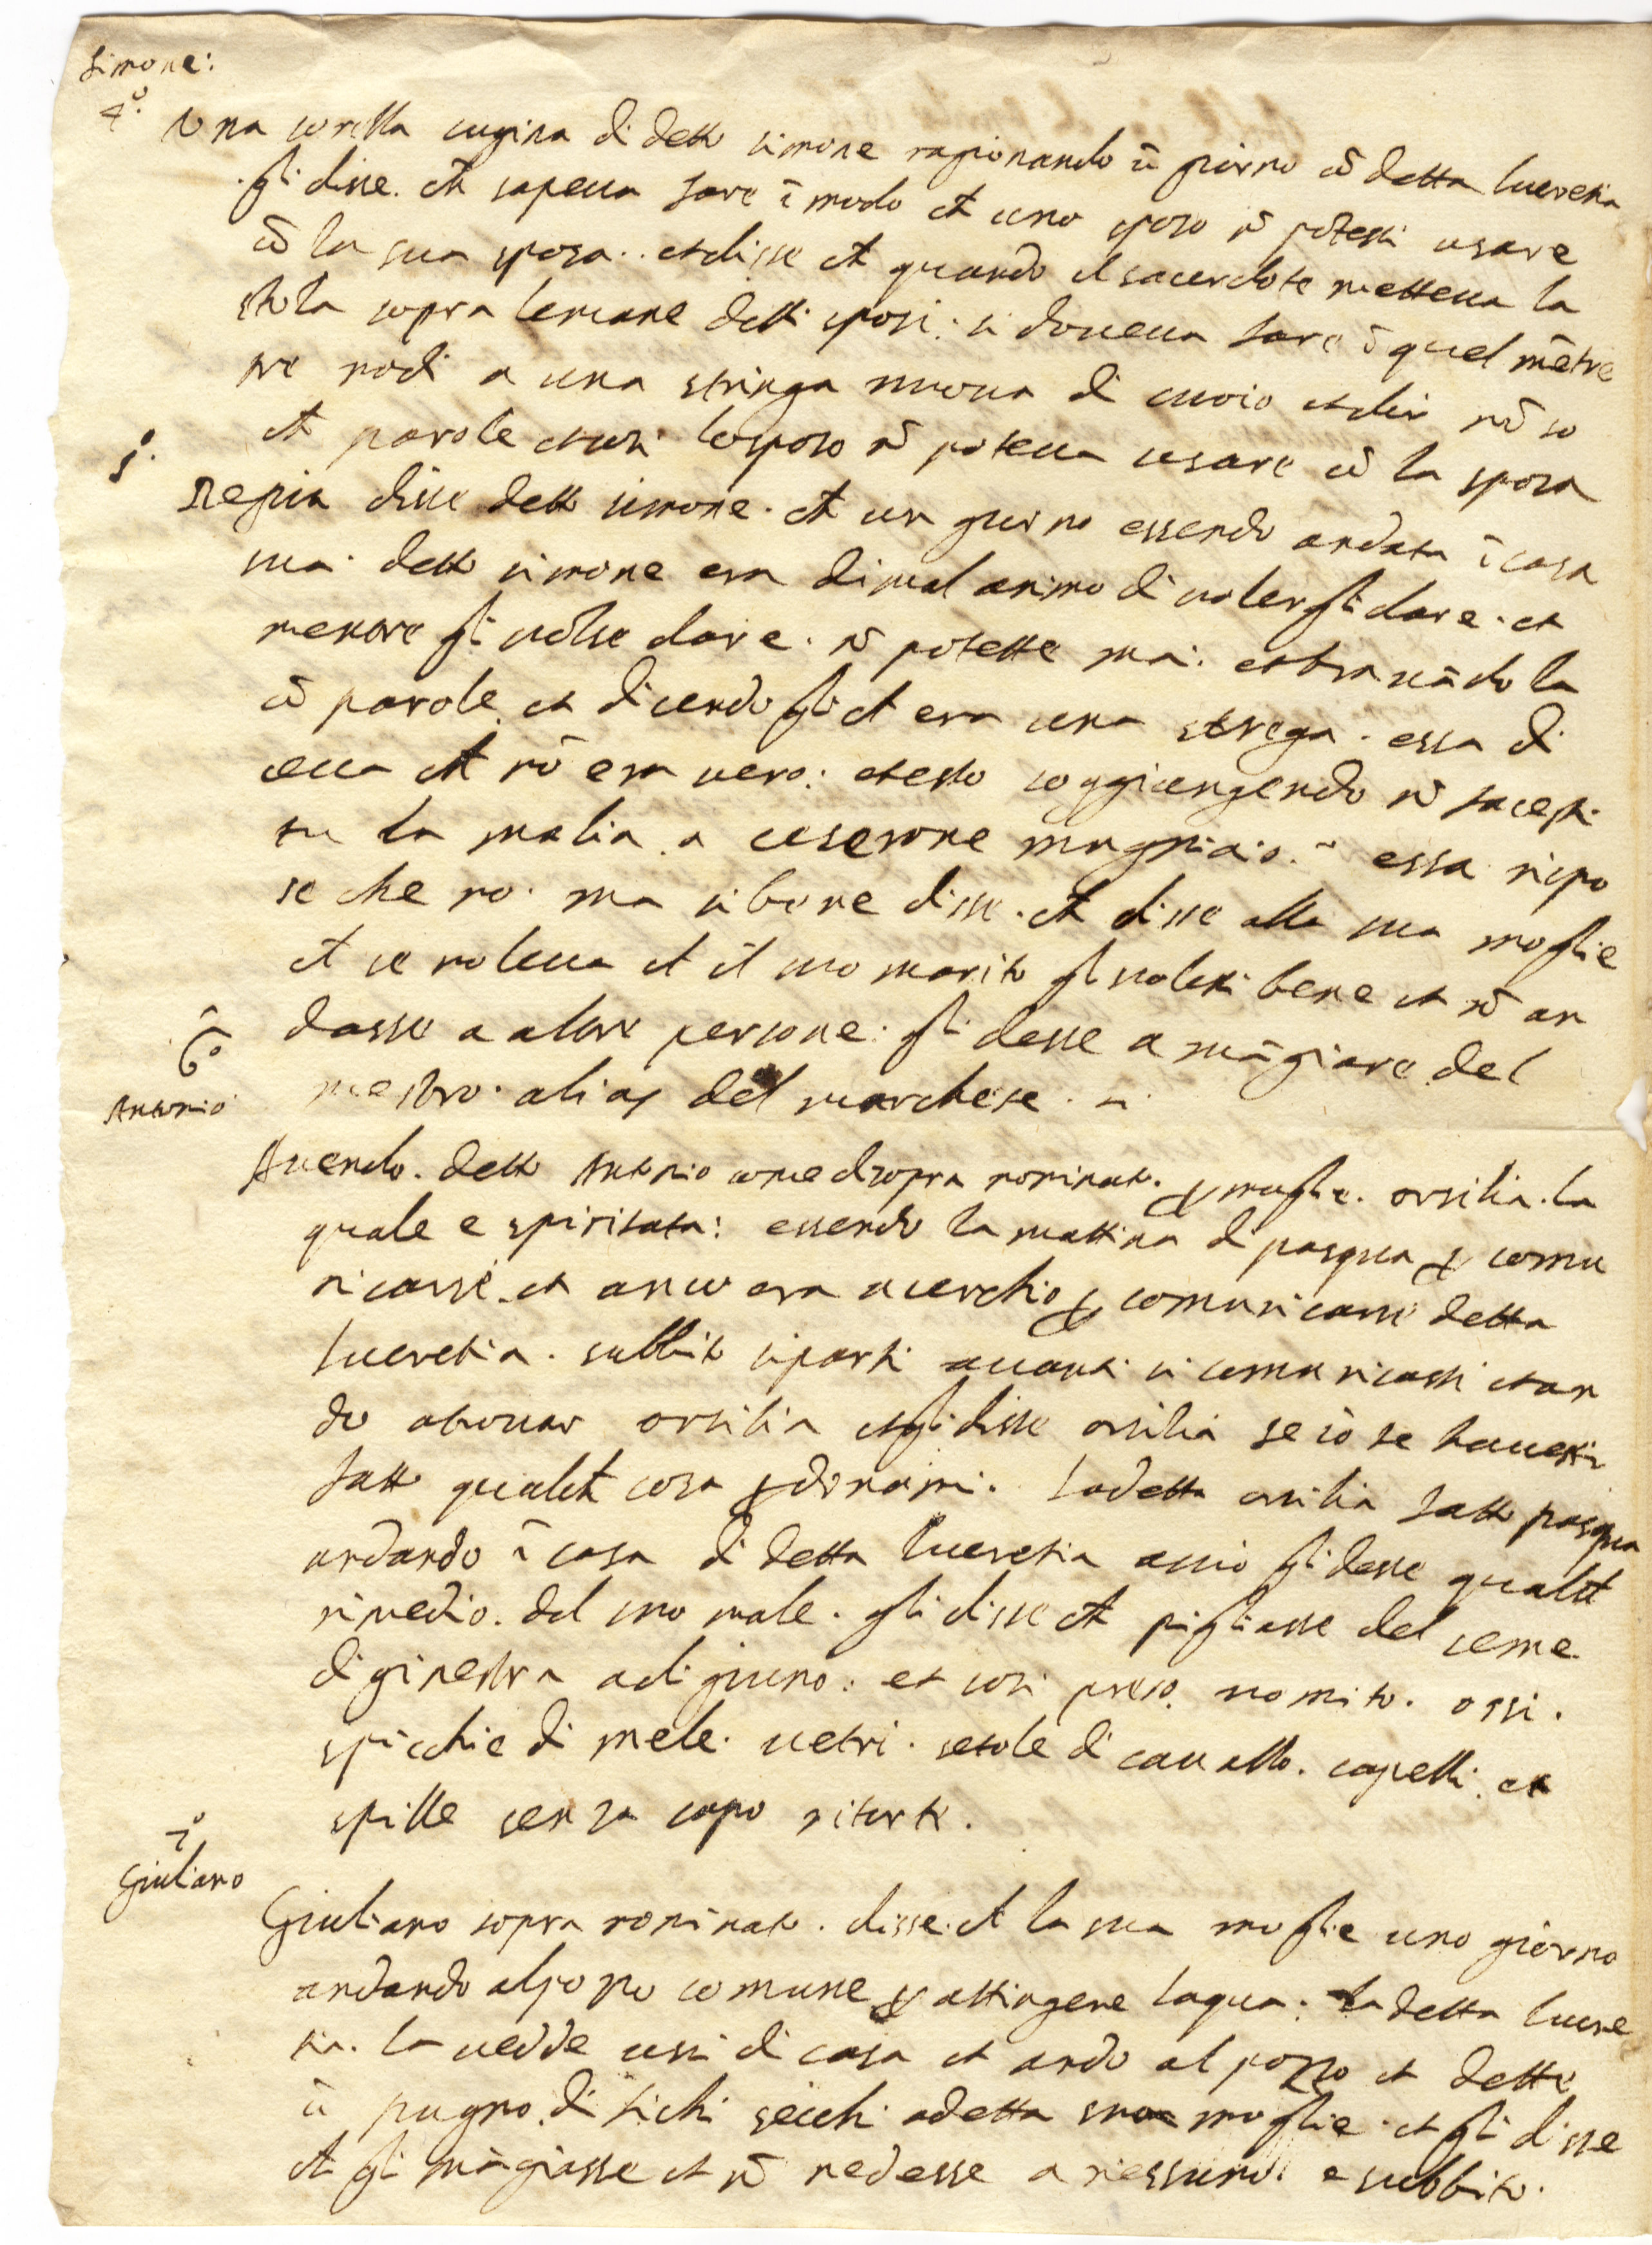 Simone:
4°. Una sorella cugina di detto simone ragionando ũ giorno cõ detta lucretia
gli disse. ch sapeua fare ĩ modo ch uno sposo nõ potessi usare
cõ la sua sposa.. et disse ch quando il sacerdote metteua la
stola sopra lemane delli sposi: si doueua fare ĩ quel mẽtre
tre nodi a una stringa nuoua di cuoio et dir nõ so
ch parole et cosi lo sposo nõ poteua usare cõ la sposa
5°. Nepiu disse detto simone. ch un giorno essendo andata ĩ casa
sua detto simone era di mal animo di volergli dare. et
mentre gli volse dare. nõ potette mai: et brauãdola
cõ parole et dicendogli ch era una strega. essa di
ceua ch nõ era vero: et esso soggiungendo nõ facesti
tu la malia a cesarone magniaio. essa rispo
se che no. ma si bene disse. ch disse alla sua moglie
ch se voleua ch il suo marito gli volessi bene et nõ an
dasse a altre persone: gli desse a mãgiare del
mestro. alias del marchese.
6°
Antonio
Auendo. detto Antonio come disopra nominato. p moglie. orsilia. la
quale e spiritata: essendo la mattina di pasqua p comu
nicarsi. et anco era a cerchio p comunicarsi detta
lucretia. subbito si parti auanti si comunicassi et an
do a trouar orsilia et gli disse orsilia se io te hauessi
fatto qualch cosa pdonami. Ladetta orsilia fatto pasqua
andando ĩ casa di detta lucretia accio gli desse qualch
rimedio. del suo male. gli disse ch pigliasse del seme
di ginestra a digiuno: et cosi preso. vomito. ossi.
spicchie di mele. vetri. setole di cauallo. capelli. et
spille senza capo ritorte.
7°
Giuliano
Giuliano sopra nominato. disse. ch la sua moglie uno giorno
andando al pozzo comune p attingere laqua: la detta lucre
tia. la vedde usci di casa et ando al pozzo et dette
ũ pugno di fichi secchi a detta sua moglie. et gli disse
ch gli mãgiasse et nõ nedesse a nessuno: e subbito.